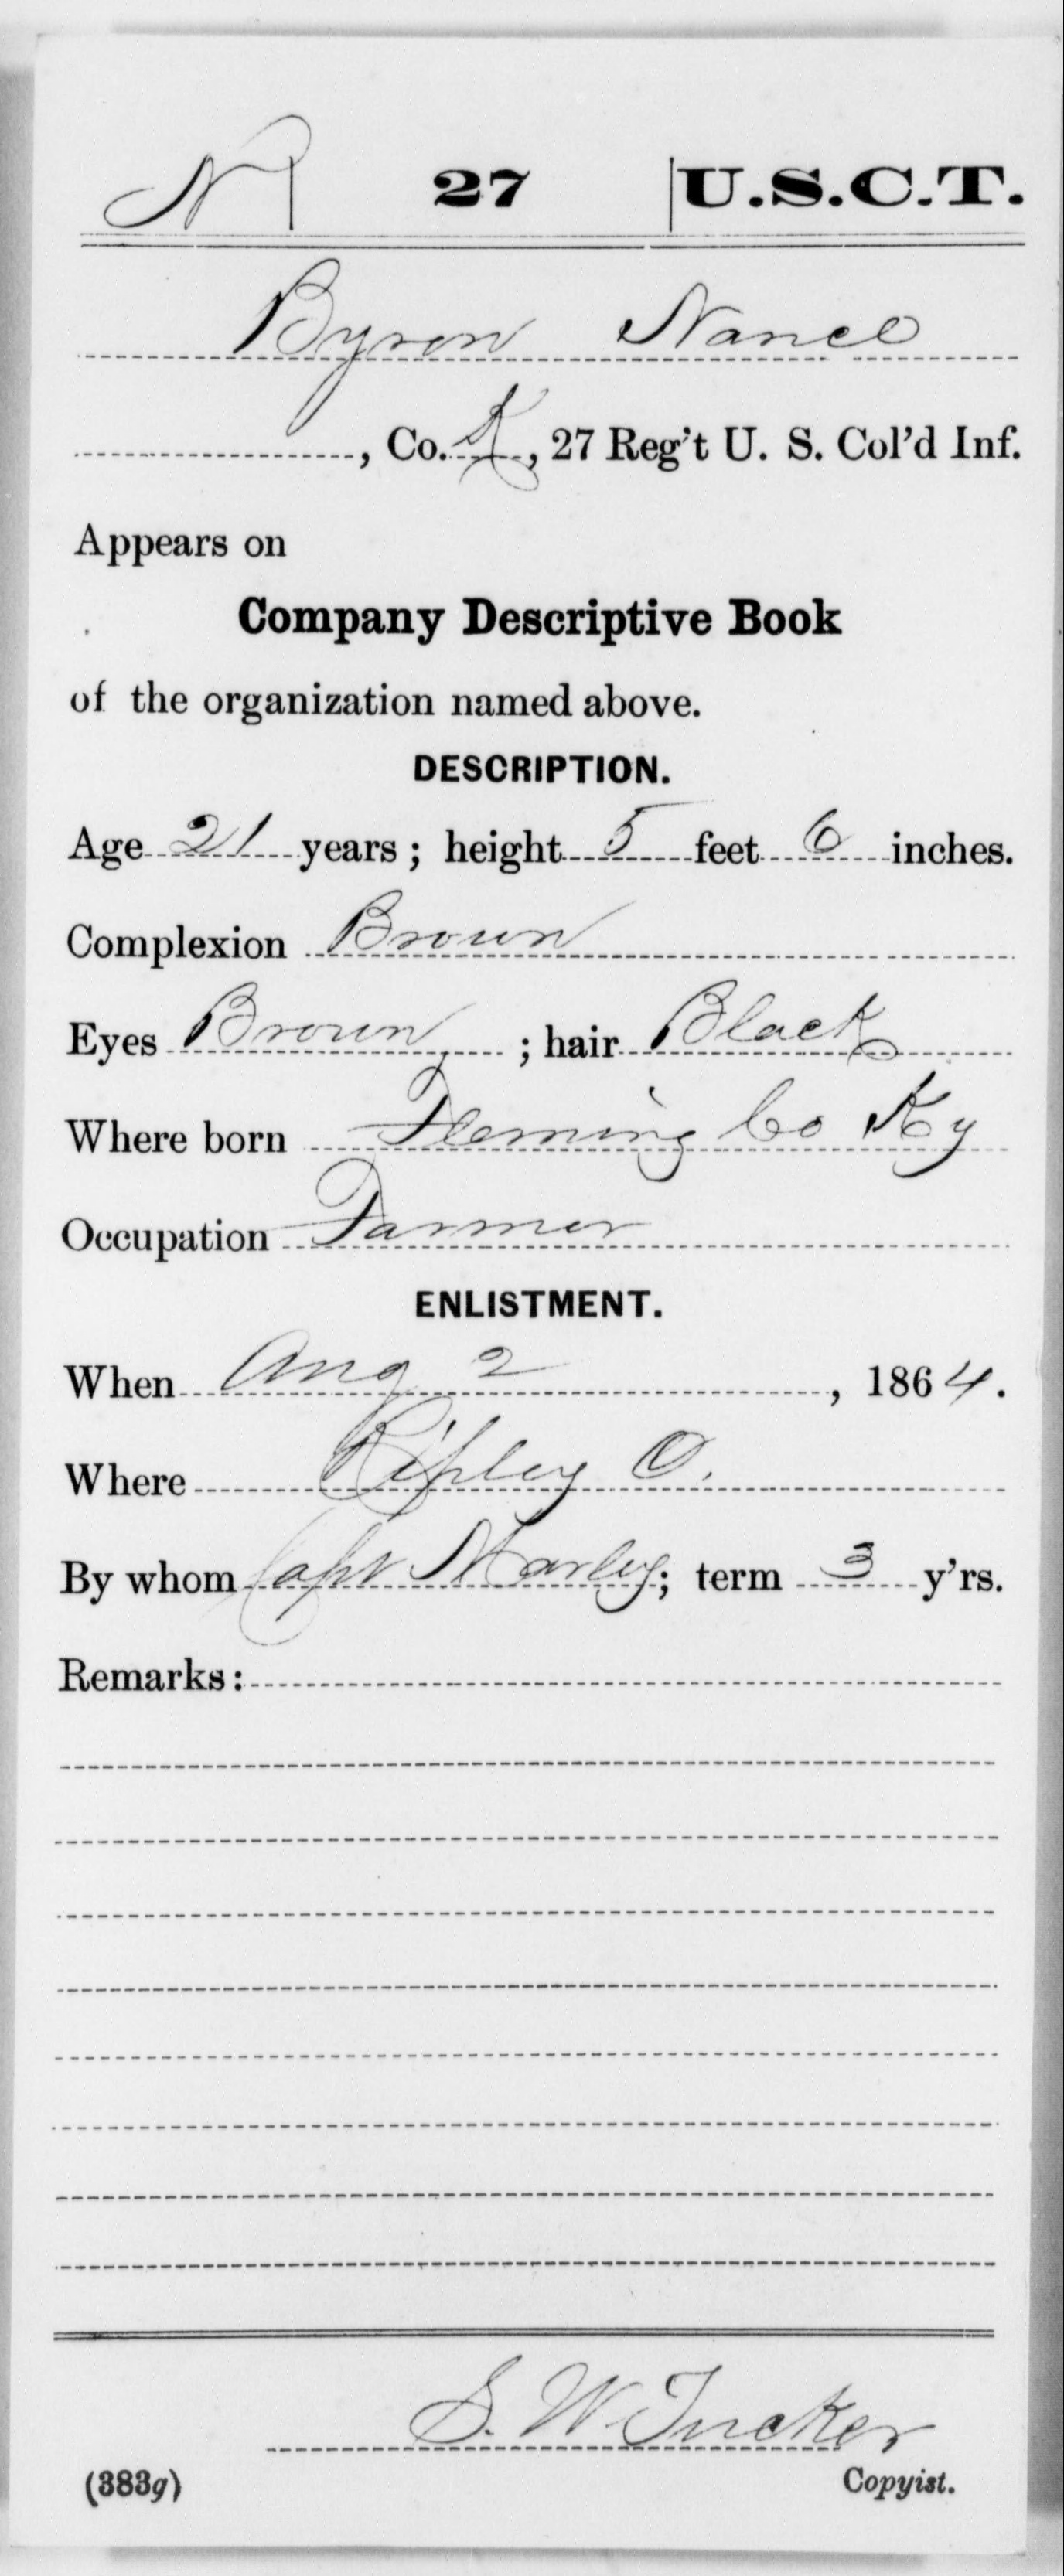 N 27 U.S.C.T.
Byron Nance
, Co. K, 27 Reg't U. S. Col'd Inf.
Appears on
Company Descriptive Book
of the organization named above.
DESCRIPTION.
Age 21 years; height 5 feet 6 inches.
Complexion Brown
Eyes Brown ; hair Black
Where born Fleming Co Ky
Occupation Farmer
ENLISTMENT.
When Aug 2, 1864.
Where Ripley O.
By whom Capt Marley; term 3 y'rs.
Remarks:
S. W. Tucker
(383g) Copyist.